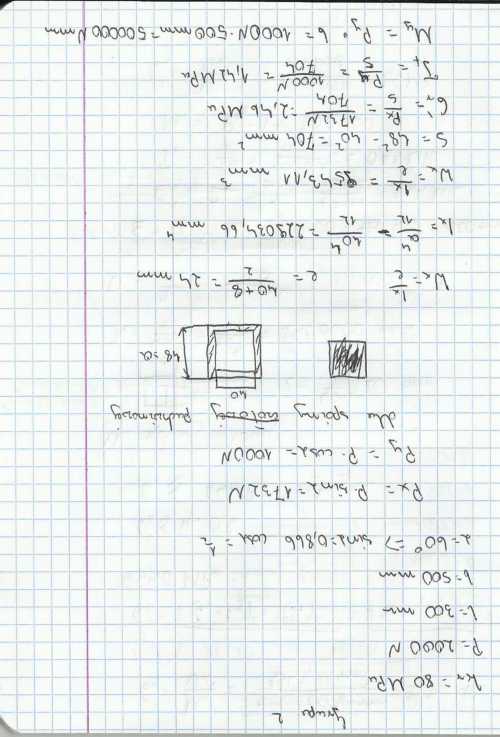 Grupa 2
kr = 80 MPa
P = 2000 N
l = 300 mm
b = 500 mm
α = 60° => sinα = 0,866 cosα = 1/2
Px = P · sinα = 1732 N
Py = P · cosα = 1000 N
dla spoiny pachwinowej
40
48 = a
Wx = Ix/e e = (40+8)/2 = 24 mm
Ix = a⁴/12 - 40⁴/12 = 229034,66 mm⁴
Wx = Ix/e = 9543,11 mm³
S = 48² - 40² = 704 mm²
σr' = Px/S = 1732N/704 = 2,46 MPa
τt = Py/S = 1000N/704 = 1,42 MPa
My = Py · b = 1000N · 500 mm = 500000 Nmm